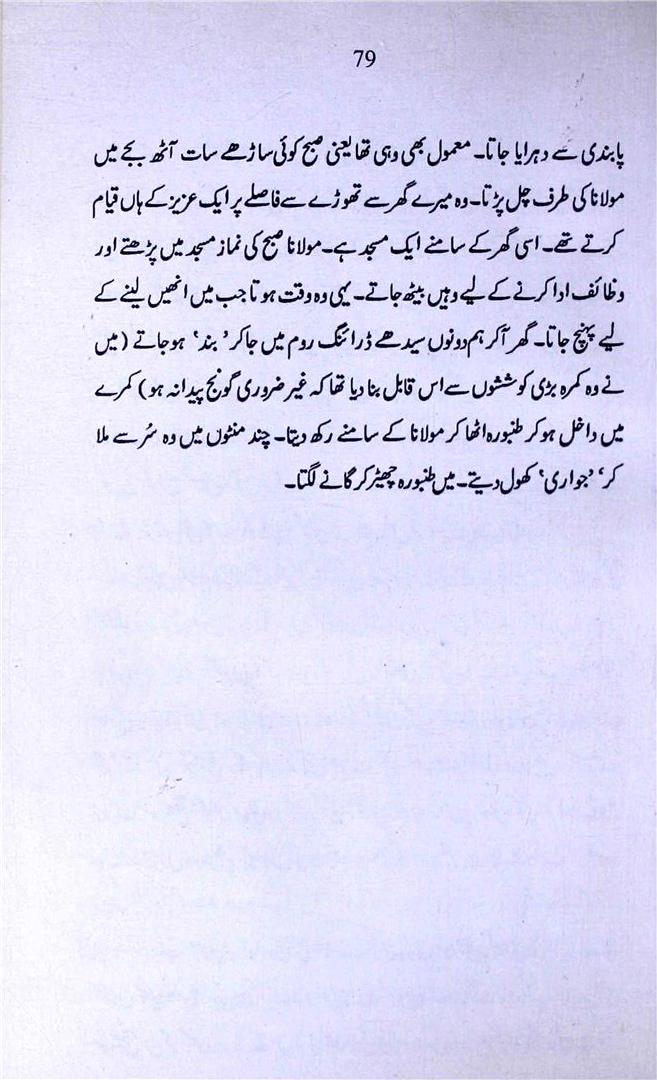 79
پابندی سے دہرایا جاتا۔ معمول بھی وہی تھا یعنی صبح کوئی ساڑھے سات آٹھ بجے میں
مولانا کی طرف چل پڑتا۔ وہ میرے گھر سے تھوڑے سے فاصلے پر ایک عزیز کے ہاں قیام
کرتے تھے۔ اسی گھر کے سامنے ایک مسجد ہے۔ مولانا صبح کی نماز مسجد میں پڑھتے اور
وظائف ادا کرنے کے لیے وہیں بیٹھ جاتے۔ یہی وہ وقت ہوتا جب میں انھیں لینے کے
لیے پہنچ جاتا۔ گھر آکر ہم دونوں سیدھے ڈرائنگ روم میں جاکر ’بند‘ ہوجاتے (میں
نے وہ کمرہ بڑی کوششوں سے اس قابل بنا دیا تھا کہ غیر ضروری گونج پیدا نہ ہو) کمرے
میں داخل ہوکر طنبورہ اٹھا کر مولانا کے سامنے رکھ دیتا۔ چند منٹوں میں وہ سُر سے ملا
کر ’جواری‘ کھول دیتے۔ میں طنبورہ چھیڑ کر گانے لگتا۔